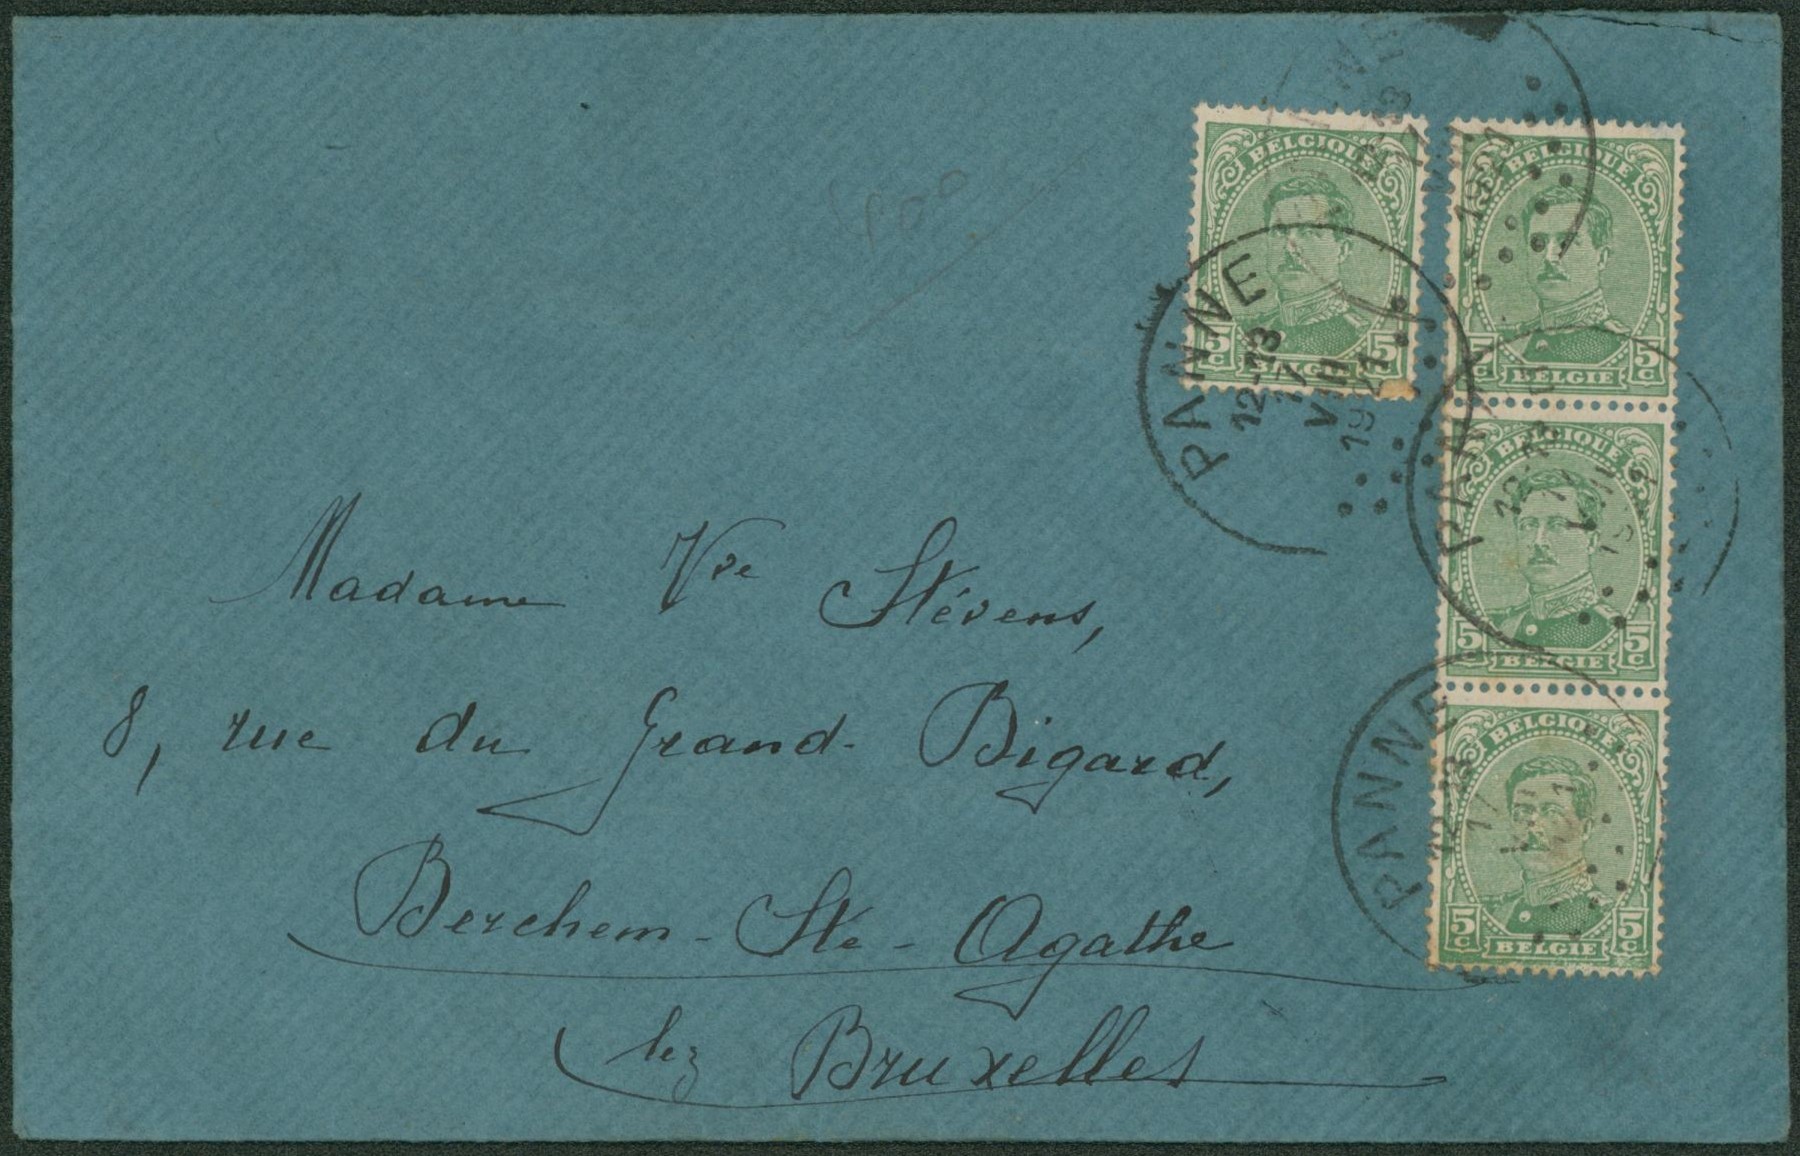 BELGIQUE
5c 5c
BELGIE
BELGIQUE
5c 5c
BELGIE
BELGIQUE
5c 5c
BELGIE
BELGIQUE
5c 5c
BELGIE
PANNE
12-13
17
VIII
1921
PANNE
Madame Vve Stévens,
8, rue du Grand-Bigard,
Berchem-Ste-Agathe
lez Bruxelles